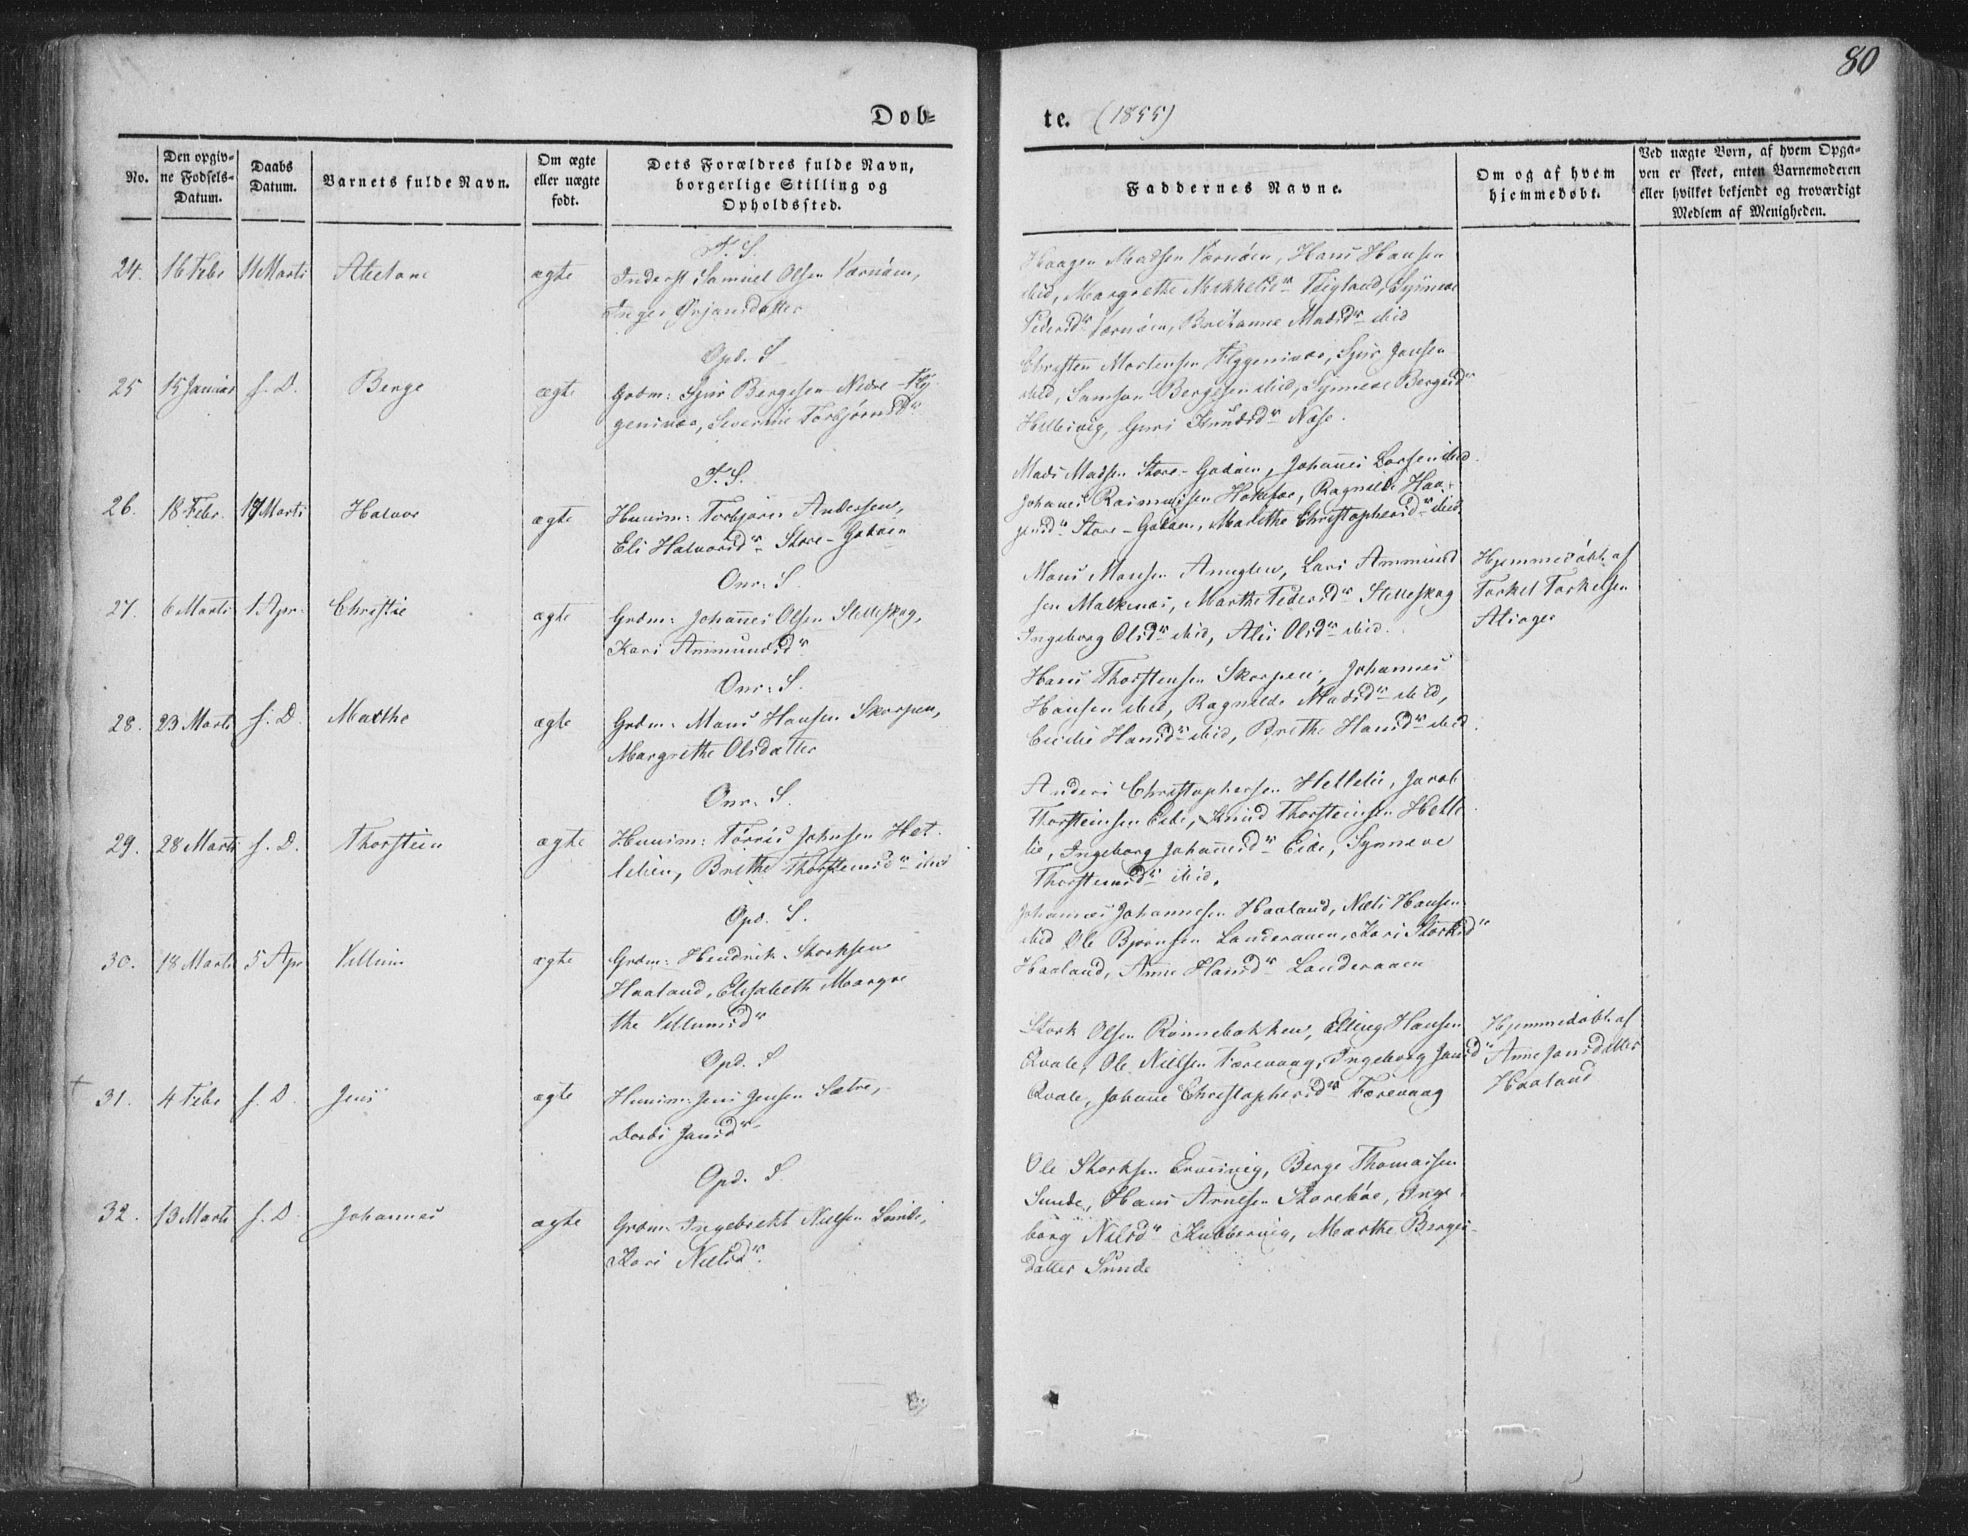 80
Døb=
te. (1855)
No.
Den opgiv=
ne Fødsels=
Datum.
Daabs
Datum.
Barnets fulde Navn.
Om ægte
eller uægte
født.
Dets Forældres fulde Navn,
borgerlige Stilling og
Opholdssted.
Faddernes Navne.
Om og af hvem
hjemmedøbt.
Ved uægte Børn, af hvem Opga=
ven er skeet, enten Barnemoderen
eller hvilket bekjendt og troværdigt
Medlem af Menigheden.
T. S.
24. 16 Febr 11 Marts ægte Inderst Samuel Olsen Værnøen,
Inger Ørjansdatter
Haagen Madsen Værnøen, Hans Hansen
ibid, Margrethe Mikkelsdr Synneve
Pedersdr Værnøen, Brithanne Madsdr ibid
Opd. S
25 15 Januar s. D. Berge ægte Grdm: Sjur Bergesen Nedre-Fly-
genivær, Severine Torbjørnsdr
Christen Mortensen Flygenivær, Sjur Jensen
ibid, Samson Bergesen ibid, Synneve Bergesdr
Hellevig, Guri Knudsdr Nese.
T. S.
26. 18 Febr. 17 Marts Halvor ægte Huusm: Torbjørn Andersen,
Eli Halvorsdr Store-Godøen
Mads Madsen Store-Godøen, Johannes Larsen ibid
Johannes Rasmussen Ragnilde Haa-
gensdr Store-Godøen, Marithe Christophersdr ibid.
Onr: S
27. 6 Marts 1 Apr. Christie ægte Grdm: Johannes Olsen Stelleskog,
Kari Ammundsdr
Mons Monsen Anuglen, Lars Ammund
sen Malkenes, Marthe Pedersdr Stelleskog
Ingeborg Olsdr ibid, Alis Olsdr ibid.
Hjemmedøbt af
Torkel Torkelsen
Onr: S.
28. 23 Marts s. D. Marthe ægte Grdm: Mons Hansen Skorpen,
Margrethe Olsdatter
Hans Thorstensen Skorpen, Johannes
Hansen ibid, Ragnilde Madsdr ibid,
Cecilie Hansdr ibid, Brithe Hansdr ibid.
Onr. S.
29. 28 Marts s. D. Thorstein ægte Huusm: Tørris Johnsen Hel-
lelien, Brithe Thorsteinsdr ibid
Anders Christophersen Hellelie, Jacob
Thorsteinsen Eide, Knud Thorsteinsen Helle
lie, Ingeborg Johannesdr Eide, Synneve
Thorsteinsdr ibid.
Opd. S.
30. 18 Marts 5 Apr Villum ægte Grdm: Hendrik Storksen
Haaland, Elisabeth Margre
the Villumsdr
Johannes Johannesen Haaland, Niels Hansen
ibid Ole Bjørnsen Landeraaen, Kari Storksdr
Haaland, Anne Hansdr Landeraaen
Opd. S
† 31. 4 Febr s. D. Jens ægte Huusm: Jens Jensen Sætre,
Dorthe Jansdr
Stork Olsen Rønnebakken, Elling Hansen
Qvale, Ole Nielsen Færevaag, Ingeborg Jansdr
Qvale, Johanne Christophersdr Færevaag
Hjemmedøbt af
Anne Jansdatter
Haaland
Opd. S.
32. 13 Marts s. D. Johannes ægte Grdm: Ingebrekt Nielsen Sunde,
Kari Nielsdr.
Ole Storksen Berge Thomassen
Sunde, Hans Arnesen Storebøe, Inge-
borg Nielsdr Kubbervig, Marthe Berges-
datter Sunde